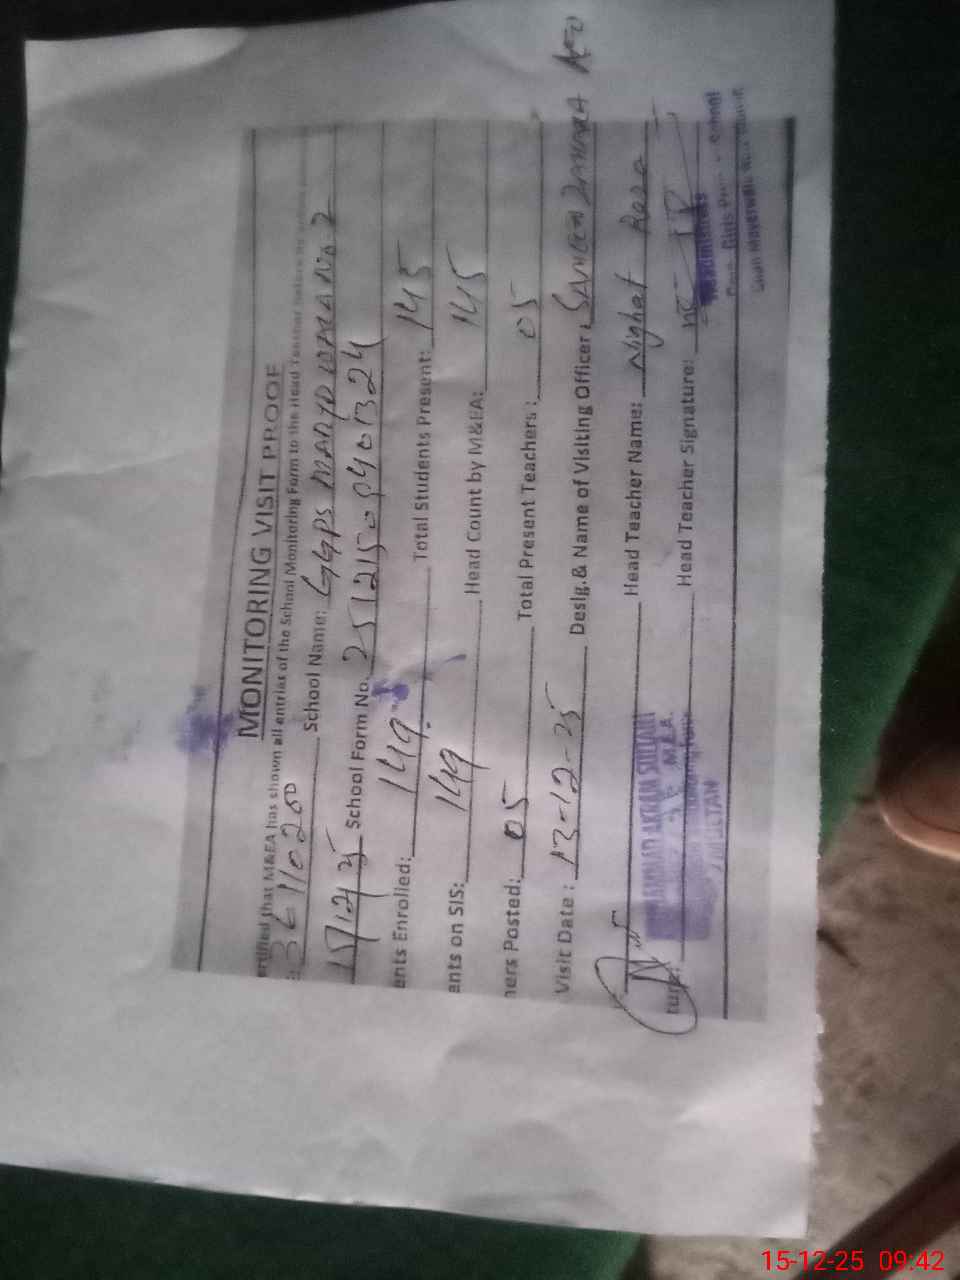 MONITORING VISIT PROOF
ertified that M&EA has shown all entries of the School Monitoring Form to the Head Teacher before
36110200 School Name: GGPS
15/12/25 School Form No. 251215-
ents Enrolled: 149 Total Students Present: 145
ents on SIS: 149 Head Count by M&EA: 145
hers Posted: 05 Total Present Teachers: 05
Visit Date: 13-12-25 Desig.& Name of Visiting Officer: AEO
Head Teacher Name: Nighat
ture: Head Teacher Signature:
AHMAD AKRAM SULTANI
M.E.A.
MULTAN
Headmistress
Govt. Girls School
15-12-25 09:42